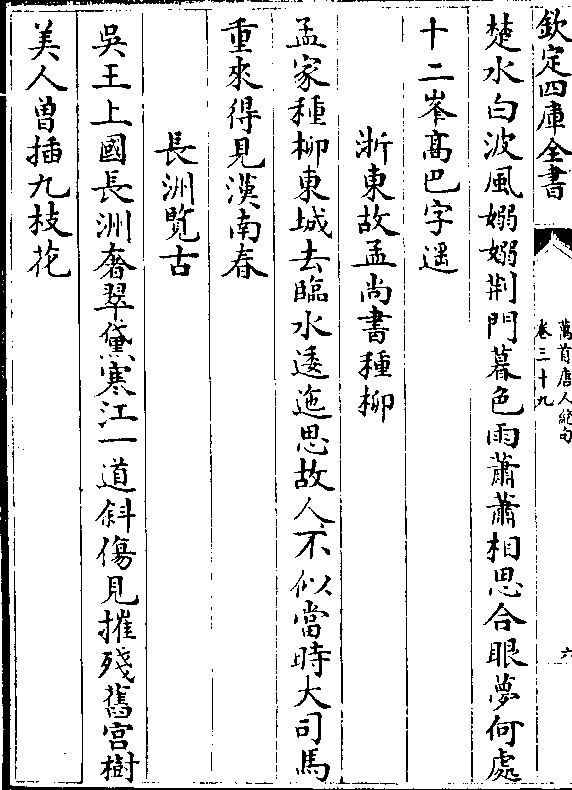 欽定四庫全書
萬首唐人絶句
卷三十九
六
楚水白波風嫋嫋荆門暮色雨蕭蕭相思合眼夢何處
十二峯髙巴字遥
浙東故孟尚書種柳
孟家種柳東城去臨水逶迤思故人不似當時大司馬
重來得見漢南春
長洲覽古
吳王上國長洲奢翠黛寒江一道斜傷見摧殘舊宫樹
美人曾插九枝花